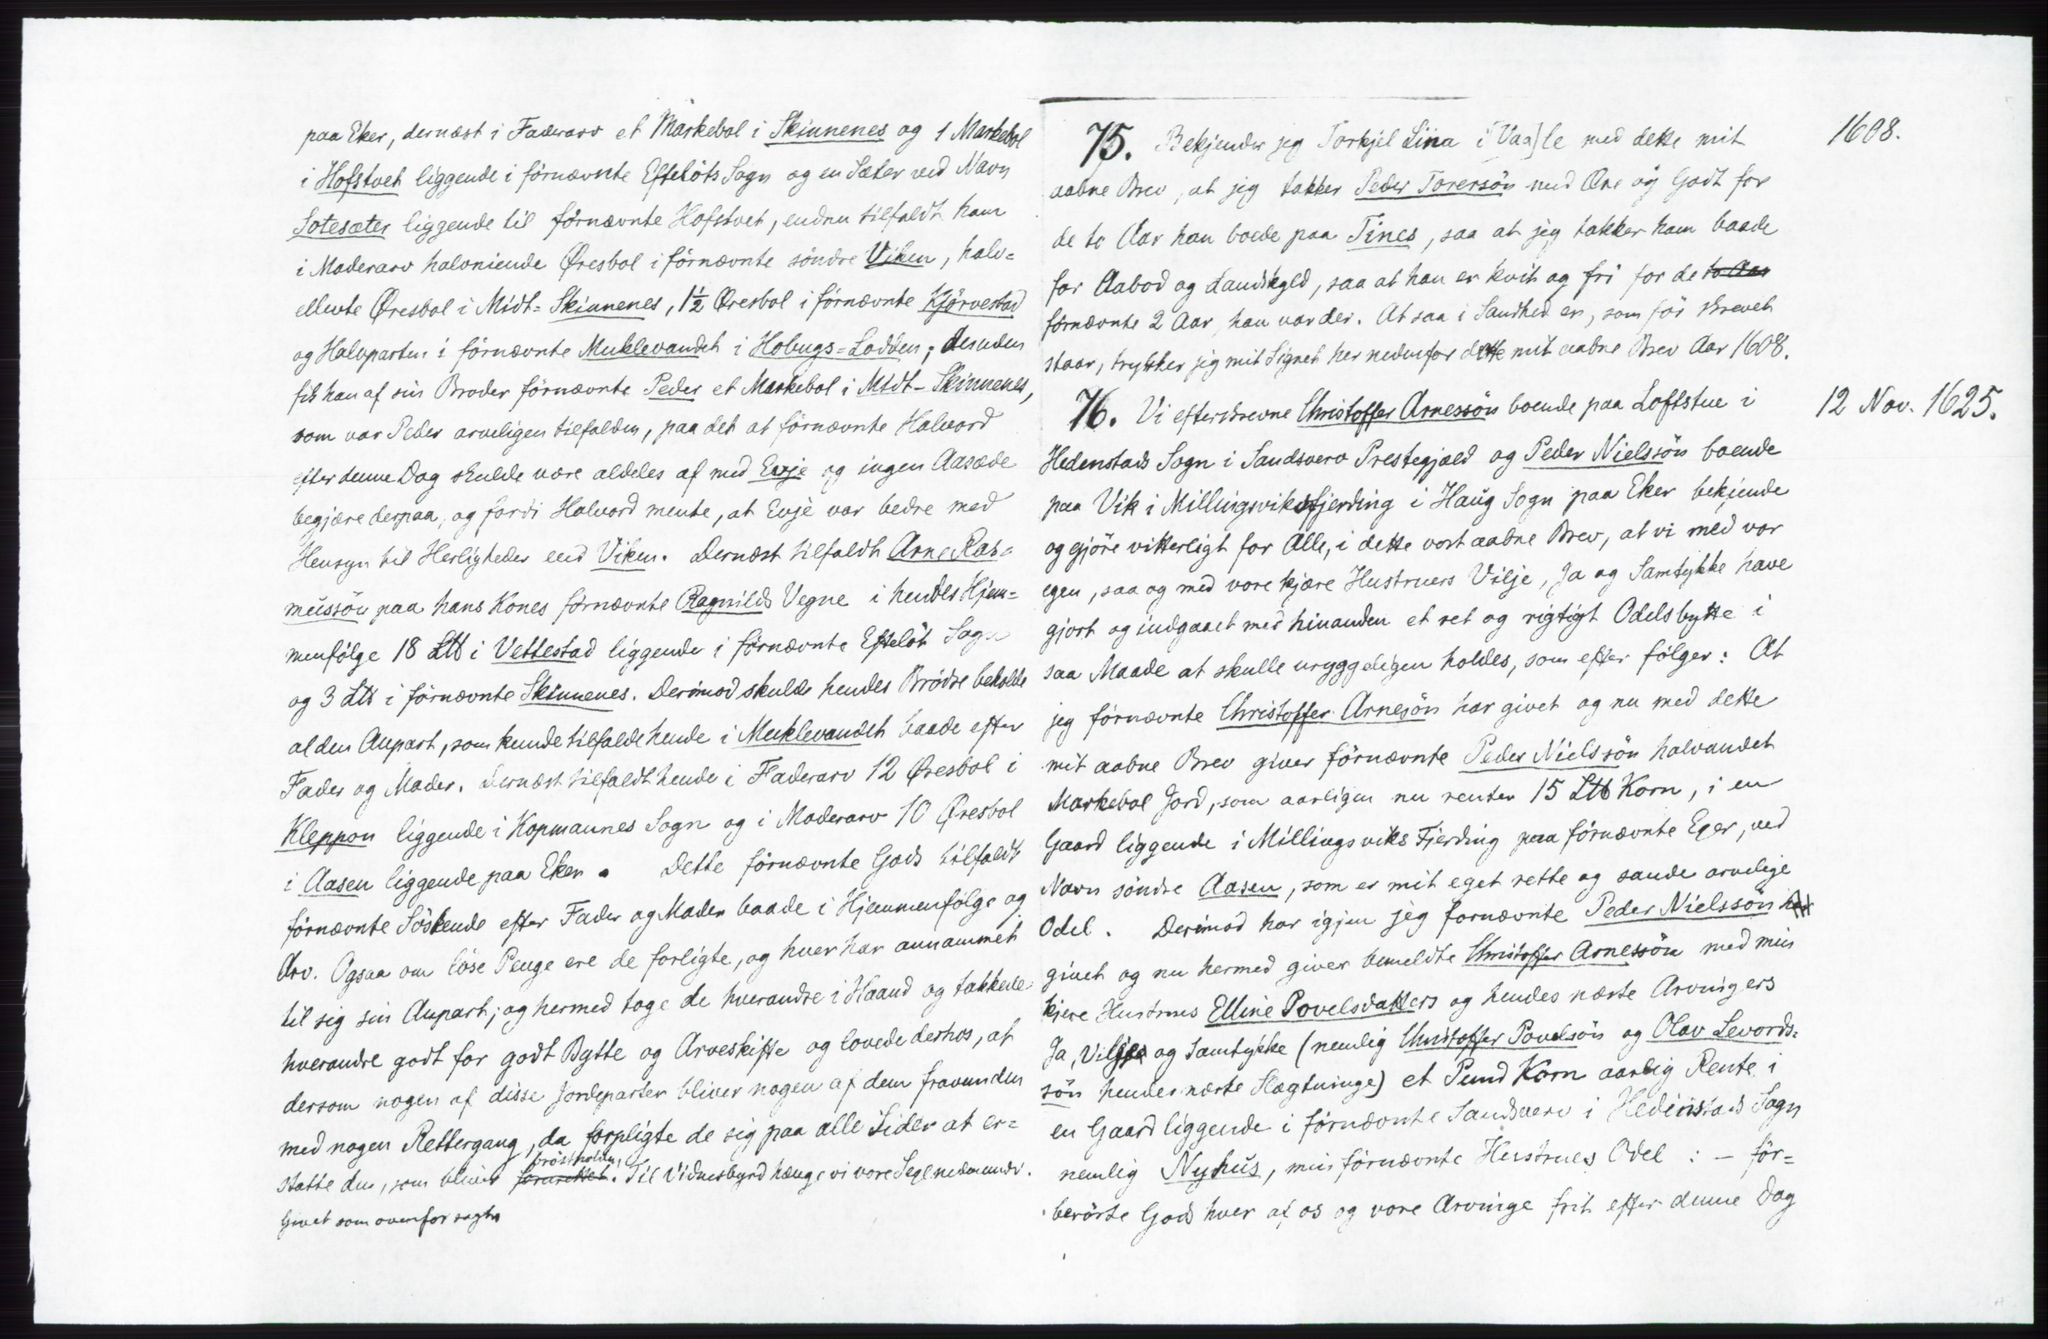 paa Eker, dernæst i Faderarv et Markebol i Skinnenes og 1 Markebol
i Hofstvet liggende i førnævnte Efteløts Sogn og en Sæter ved Navn
Sotesæter liggende til førnævnte Hofstvet, endnu tilfaldt ham
i Moderarv halvniende Øresbol i førnævnte søndre Viken, halv-
ellevte Øresbol i Midt-Skinnenes, 1½ Øresbol i førnævnte Kjørvestad
og Halvparten i førnævnte Muklevandet i Hobugs-Lodden; desuden
fik han af sin Broder førnævnte Peder et Markebol i Midt-Skinnenes,
som var Peder arveligen tilfalden, paa det at førnævnte Halvord
efter denne Dag skulde være aldeles af med Evje og ingen Aasæde
begjære derpaa, og fordi Halvord mente, at Evje var bedre med
Hensyn til Herligheder end Viken. Dernæst tilfaldt Arne Ras-
mussøn paa hans Kones førnævnte Ragnilds Vegne i hendes Hjem-
menfølge 18 Ltb i Vettestad liggende i førnævnte Efteløt Sogn
og 3 Ltb i førnævnte Skinnenes. Derimod skulde hendes Brødre beholde
al den Anpart, som kunde tilfalde hende i Muklevandet baade efter
Fader og Moder. Dernæst tilfaldt hende i Faderarv 12 Øresbol i
Kleppon liggende i Kopmannes Sogn og i Moderarv 10 Øresbol
i Aasen liggende paa Eker. Dette førnævnte Gods tilfaldt
førnævnte Søskende efter Fader og Moder baade i Hjemmenfølge og
Arv. Ogsaa om løse Penge ere de forligte, og hver har annammet
til sig sin Anpart; og hermed toge de hverandre i Haand og takkede
hverandre godt for godt Bytte og Arveskifte og lovede derhos, at
dersom nogen af disse Jordeparter bliver nogen af dem fravunden
med nogen Rettergang, da forpligte de sig paa alle Sider at er-
brøstholden
statte den, som bliver forurettet. Til Vidnesbyrd hænge vi vore Segl nedenunder.
Givet som ovenfor sagt.
75. Bekjender jeg Torkjel Lina i [Vaa]le med dette mit
1608.
aabne Brev, at jeg takker Peder Torersøn med Ære og Godt for
de to Aar han boede paa Tines, saa at jeg takker ham baade
for Aabod og Landskyld, saa at han er kvit og fri for de to Aar
førnævnte 2 Aar, han var der. At saa i Sandhed er, som før skrevet
staar, trykker jeg mit Signet her nedenfor dette mit aabne Brev Aar 1608.
76. Vi efterskrevne Christoffer Arnessøn boende paa Loftstue i
12 Nov. 1625.
Hedenstads Sogn i Sandsverv Prestegjæld og Peder Nielssøn boende
paa Vik i Millingsviks fjerding i Haug Sogn paa Eker bekjende
og gjøre vitterligt for Alle, i dette vort aabne Brev, at vi med vor
egen, saa og med vore kjære Hustruers Vilje, Ja og Samtykke have
gjort og indgaaet med hinanden et ret og rigtigt Odelsbytte i
saa Maade at skulle uryggeligen holdes, som efter følger: At
jeg førnævnte Christoffer Arnesøn har givet og nu med dette
mit aabne Brev giver førnævnte Peder Nielssøn halvandet
Markebol Jord, som aarligen nu renter 15 Ltb Korn, i en
Gaard liggende i Millingsviks Fjerding paa førnævnte Eger, ved
Navn søndre Aasen, som er mit eget rette og sande arvelige
Odel. Derimod har igjen jeg førnævnte Peder Nielssøn
givet og nu hermed giver bemeldte Christoffer Arnessøn med min
kjere Hustrues Elline Povelsdatters og hendes nærte Arvingers
Ja, Vilje og Samtykke (nemlig Christoffer Povelsøn og Olav Levords-
søn hendes nærte Slægtninge) et Pund Korn aarlig Rente i
en Gaard liggende i førnævnte Sandsverv i Hedenstads Sogn
nemlig Nyhus, min førnævnte Hustrues Odel : – før-
berørte Gods hver af os og vore Arvinge frit efter denne Dag